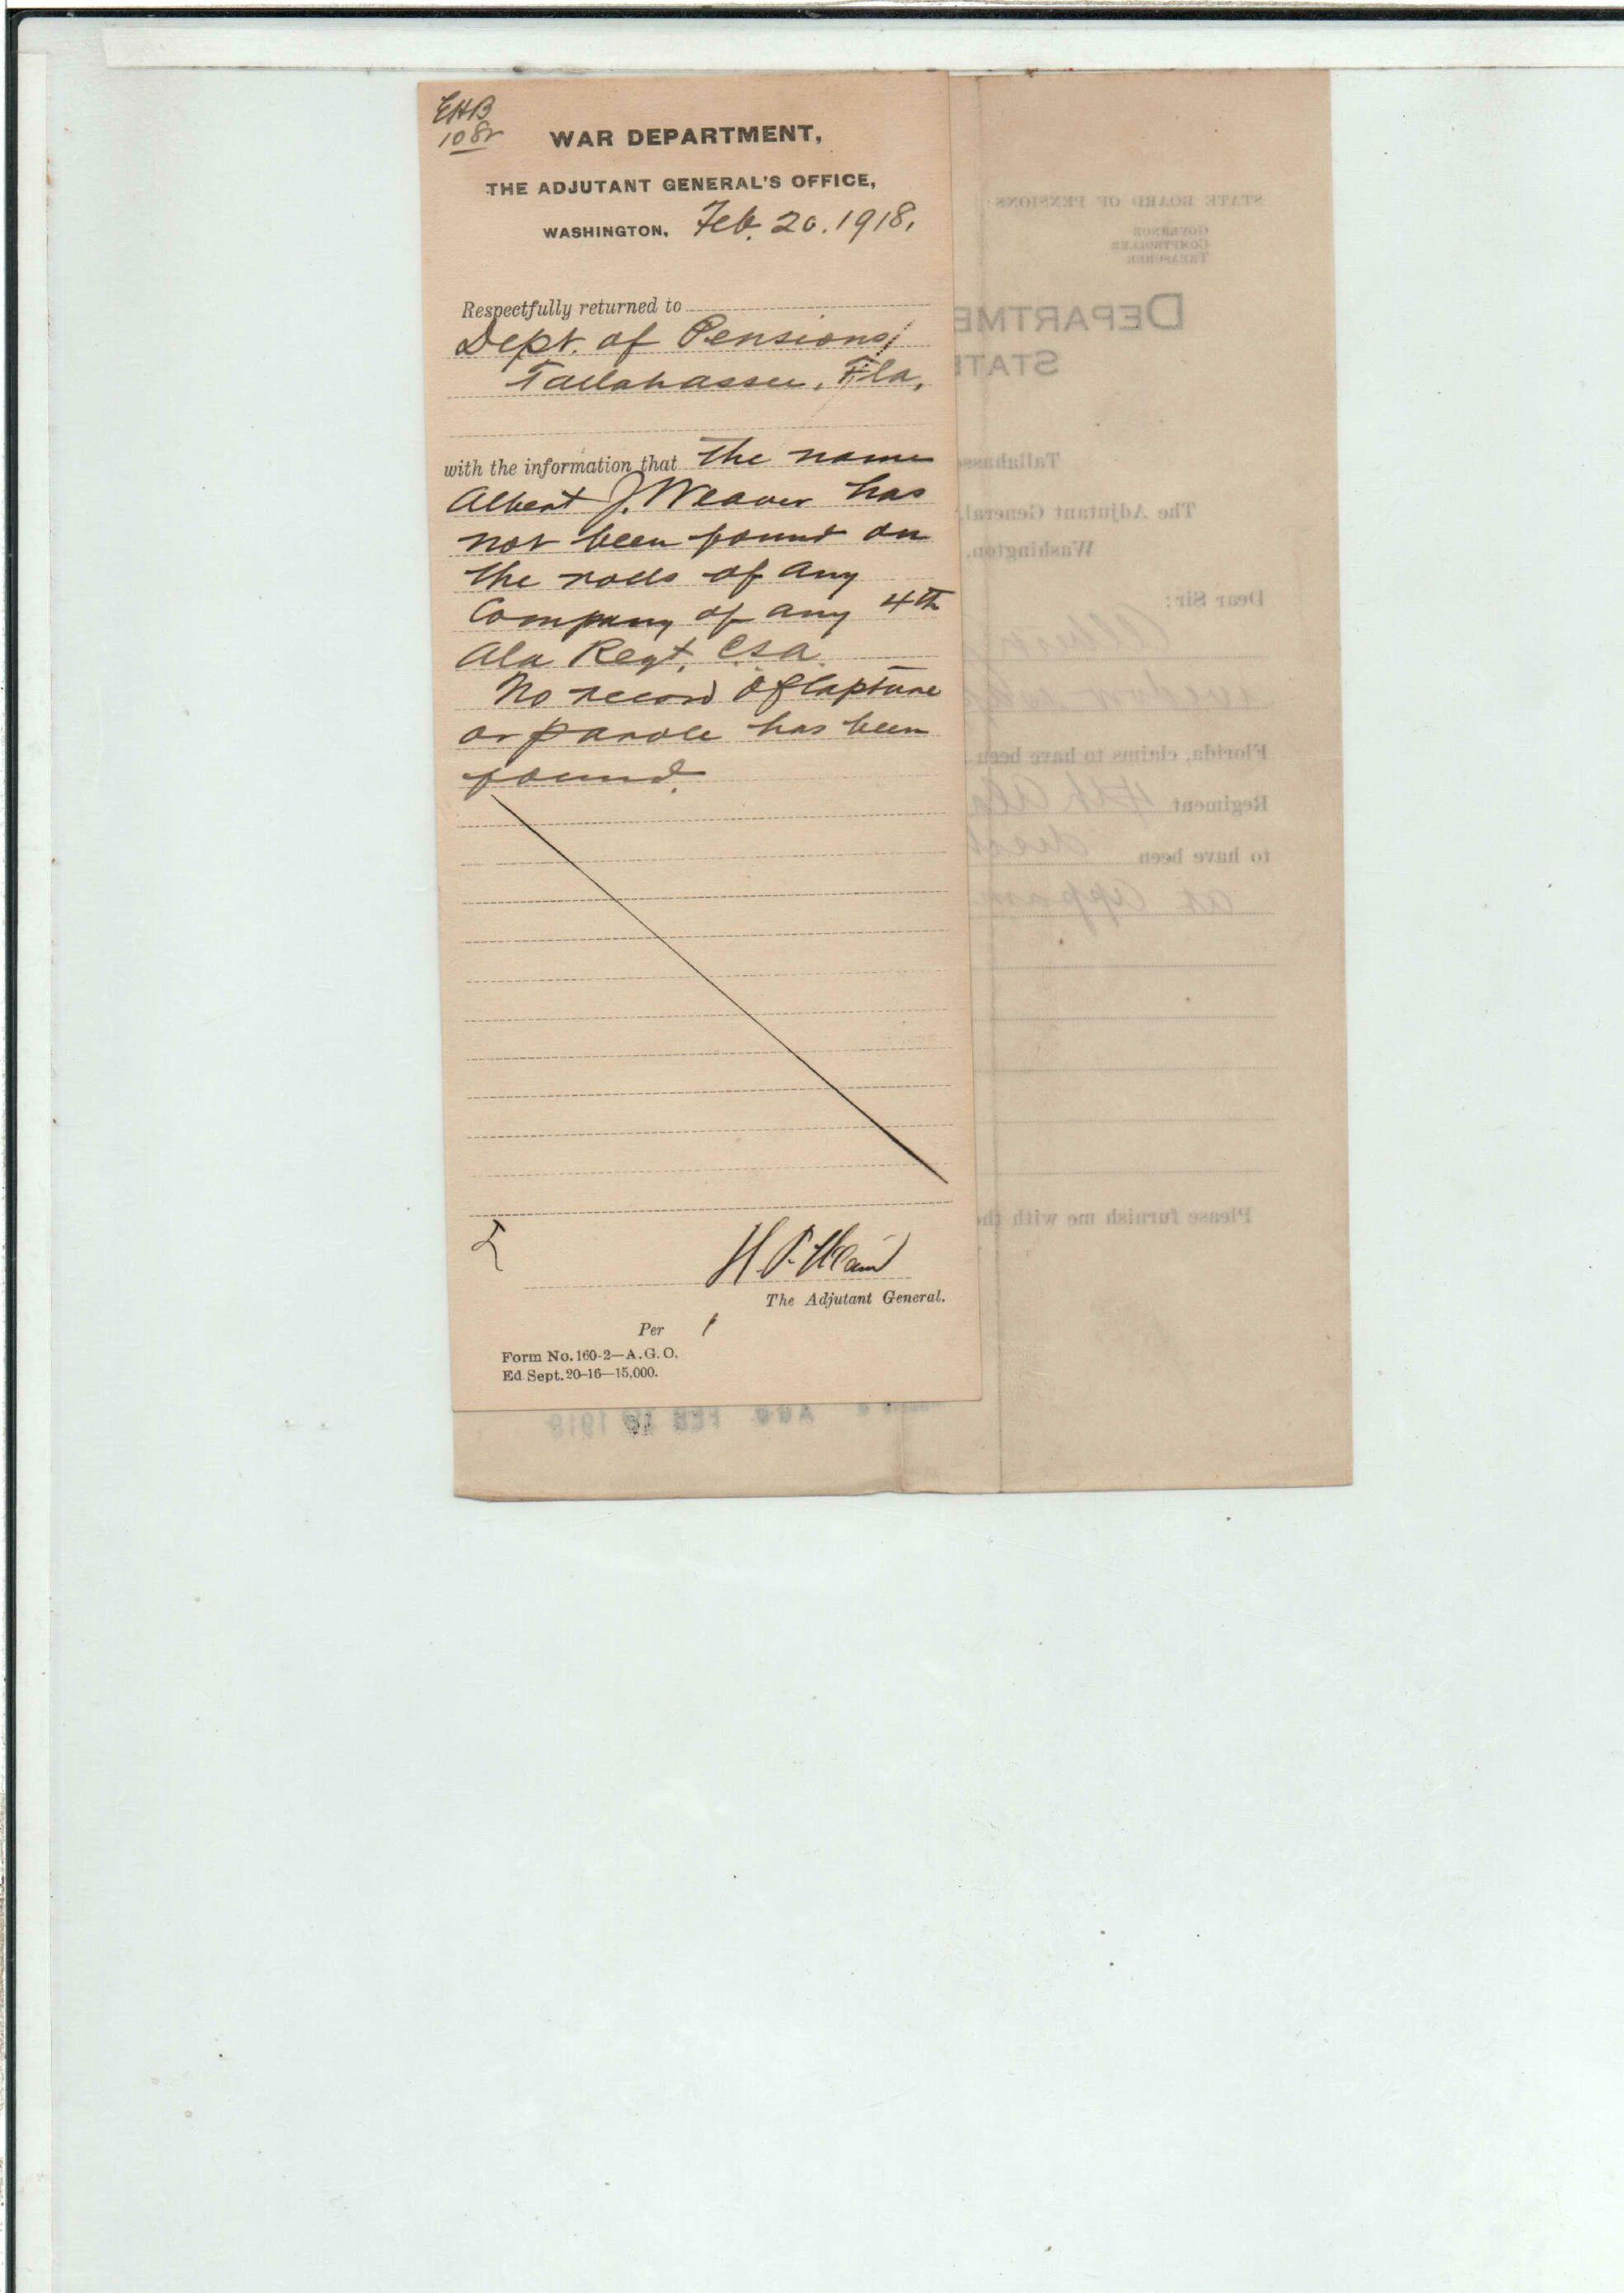 EHB
1082
WAR DEPARTMENT,
THE ADJUTANT GENERAL'S OFFICE,
WASHINGTON, Feb. 20. 1918.
Respectfully returned to
Dept. of Pensions,
Tallahassee, Fla,
with the information that The name
Albert J. Weaver has
not been found on
the rolls of any
Company of any 4th
Ala Regt, C.S.A.
No record of Capture
or parole has been
found.
The Adjutant General.
Per
Form No. 160-2—A.G.O.
Ed Sept. 20-16—15,000.
STATE BOARD OF PENSIONS
GOVERNOR
COMPTROLLER
TREASURER
DEPARTME
STATE
Tallahasse
The Adjutant General,
Washington,
Dear Sir:
Florida, claims to have been
Regiment 4th Ala
to have been
at
Please furnish me with the
A.G.O. FEB 19 1918